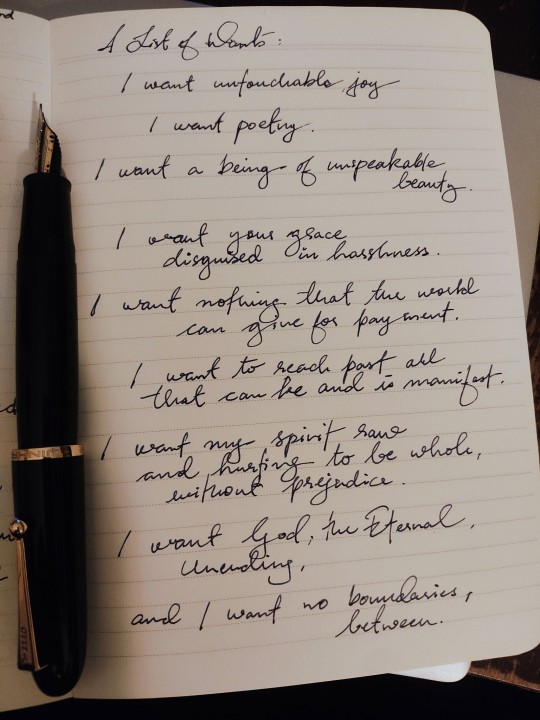 A List of Wants:
I want untouchable joy
I want poetry.
I want a being of unspeakable
beauty.
I want your grace
disguised in harshness.
I want nothing that the world
can give for payment.
I want to reach past all
that can be and is manifest.
I want my spirit raw
and hurting to be whole,
without prejudice.
I want God, the Eternal,
Unending,
and I want no boundaries,
between.